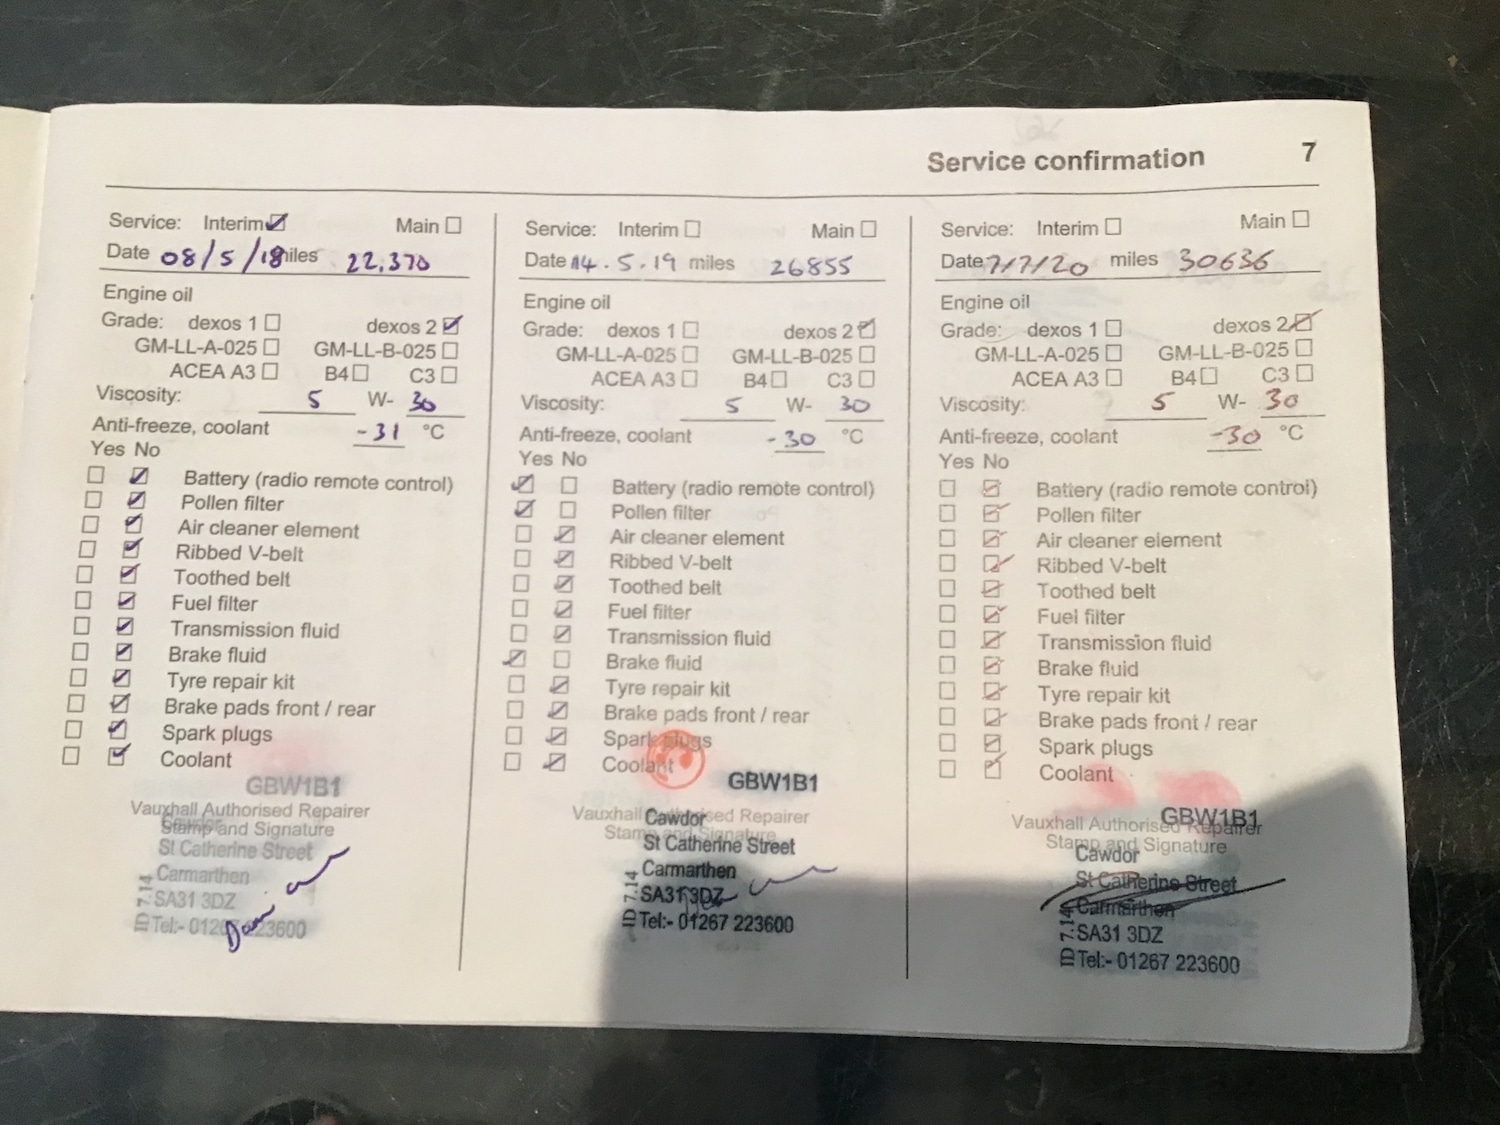 Service confirmation 7
Service: Interim ☑ Main ☐
Date 08/5/18 miles 22,370
Engine oil
Grade: dexos 1 ☐ dexos 2 ☑
GM-LL-A-025 ☐ GM-LL-B-025 ☐
ACEA A3 ☐ B4 ☐ C3 ☐
Viscosity: 5 W- 30
Anti-freeze, coolant -31 °C
Yes No
☐ ☑ Battery (radio remote control)
☐ ☑ Pollen filter
☐ ☑ Air cleaner element
☐ ☑ Ribbed V-belt
☐ ☑ Toothed belt
☐ ☑ Fuel filter
☐ ☑ Transmission fluid
☐ ☑ Brake fluid
☐ ☑ Tyre repair kit
☐ ☑ Brake pads front / rear
☐ ☑ Spark plugs
☐ ☑ Coolant
GBW1B1
Vauxhall Authorised Repairer
Stamp and Signature
St Catherine Street
Carmarthen
SA31 3DZ
Tel:- 01267 223600
Service: Interim ☐ Main ☐
Date 14.5.19 miles 26855
Engine oil
Grade: dexos 1 ☐ dexos 2 ☑
GM-LL-A-025 ☐ GM-LL-B-025 ☐
ACEA A3 ☐ B4 ☐ C3 ☐
Viscosity: 5 W- 30
Anti-freeze, coolant -30 °C
Yes No
☑ ☐ Battery (radio remote control)
☑ ☐ Pollen filter
☐ ☑ Air cleaner element
☐ ☑ Ribbed V-belt
☐ ☑ Toothed belt
☐ ☑ Fuel filter
☐ ☑ Transmission fluid
☑ ☐ Brake fluid
☐ ☑ Tyre repair kit
☐ ☑ Brake pads front / rear
☐ ☑ Spark plugs
☐ ☑ Coolant
GBW1B1
Vauxhall Authorised Repairer
Cawdor
Stamp and Signature
St Catherine Street
Carmarthen
SA31 3DZ
ID 7.14
Tel:- 01267 223600
Service: Interim ☐ Main ☐
Date 7/7/20 miles 30636
Engine oil
Grade: dexos 1 ☐ dexos 2 ☑
GM-LL-A-025 ☐ GM-LL-B-025 ☐
ACEA A3 ☐ B4 ☐ C3 ☐
Viscosity: 5 W- 30
Anti-freeze, coolant -30 °C
Yes No
☐ ☑ Battery (radio remote control)
☐ ☑ Pollen filter
☐ ☑ Air cleaner element
☐ ☑ Ribbed V-belt
☐ ☑ Toothed belt
☐ ☑ Fuel filter
☐ ☑ Transmission fluid
☐ ☑ Brake fluid
☐ ☑ Tyre repair kit
☐ ☑ Brake pads front / rear
☐ ☑ Spark plugs
☐ ☑ Coolant
GBW1B1
Vauxhall Authorised Repairer
Stamp and Signature
Cawdor
St Catherine Street
Carmarthen
SA31 3DZ
ID 7.14
Tel:- 01267 223600